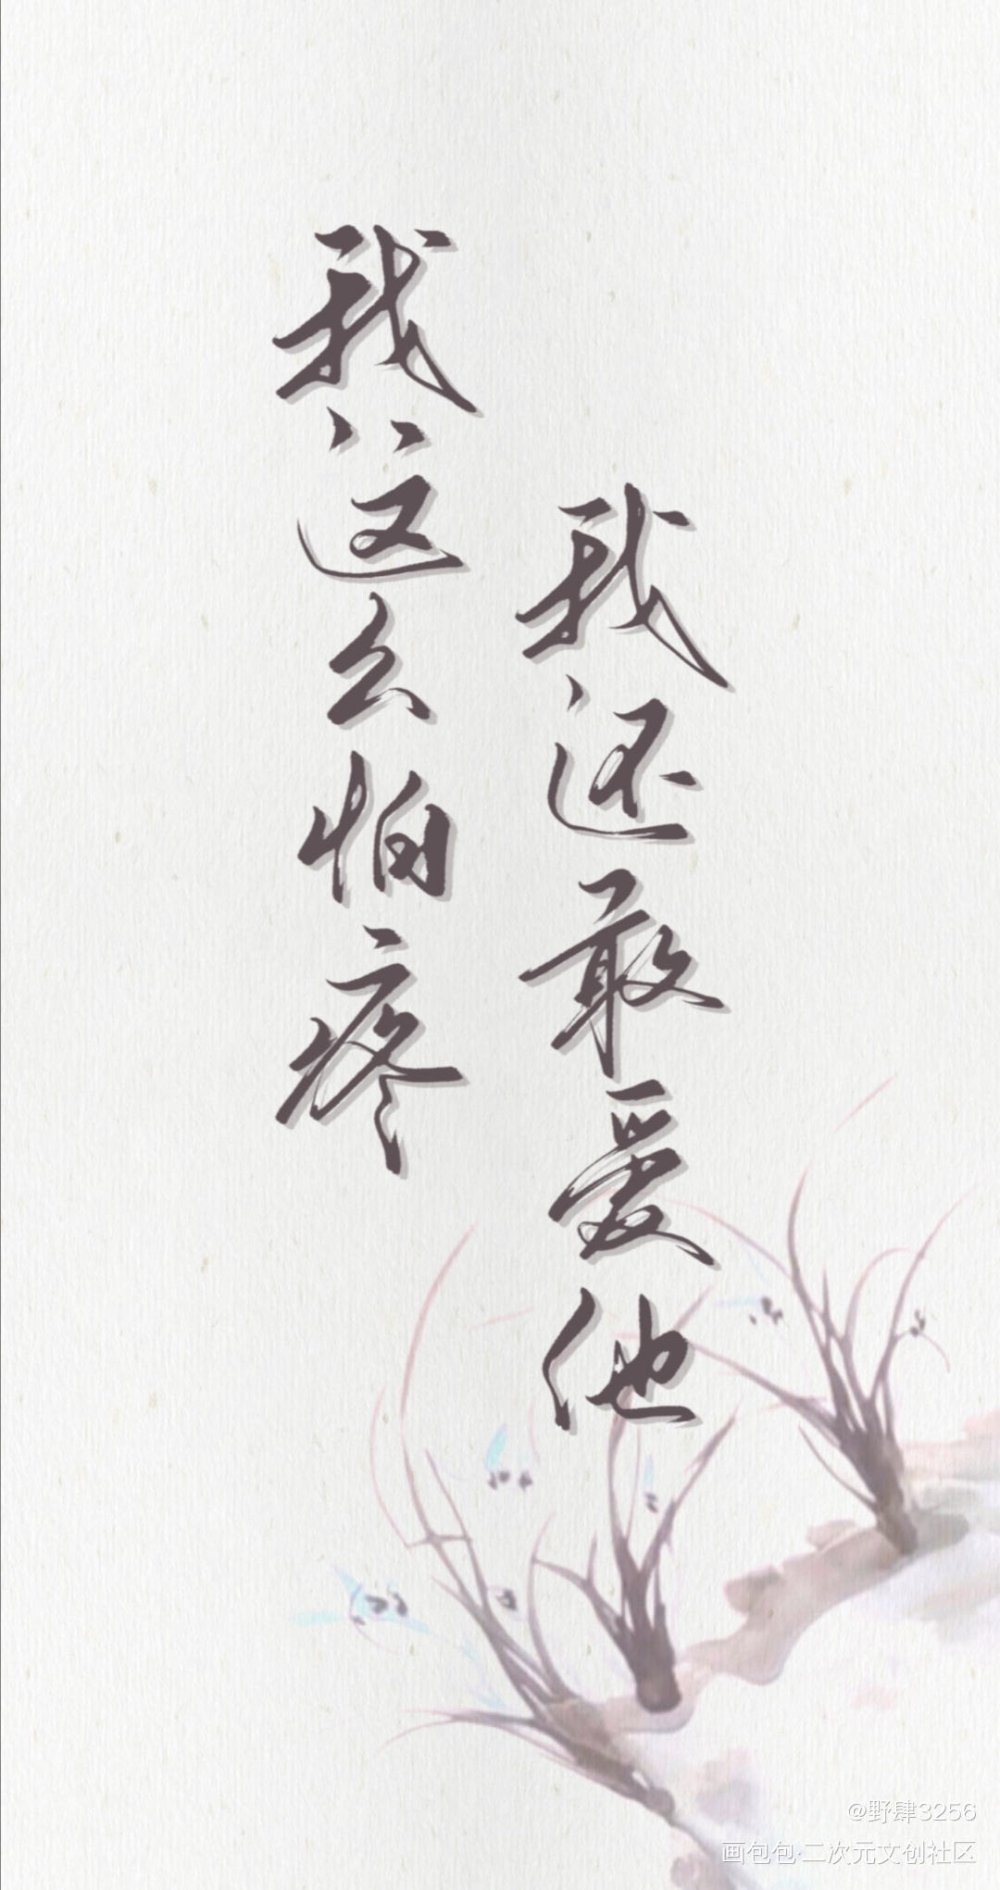 我这么怕疼
我还敢爱他
@野肆3256
画包包·二次元文创社区